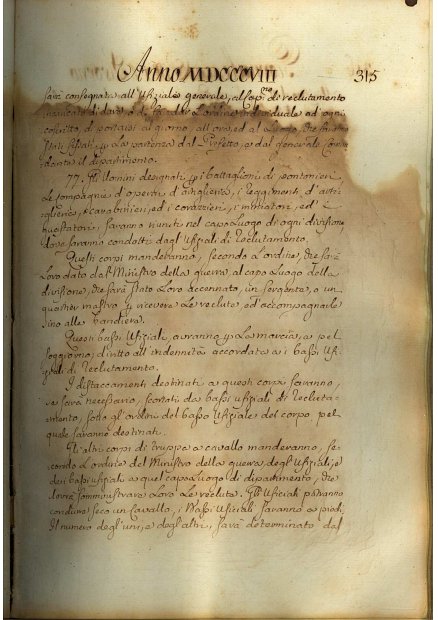 Anno MDCCCVIII 315
sarà consegnata all'Ufiziale generale, al Cap.no di reclutamento
incaricato di dare l'ordine individuale ad ogni
coscritto, di portarsi al giorno, all'ora, ed al Luogo, che saranno
stati fissati per la partenza dal Prefetto, e dal generale Coman
dante il dipartimento.
77. Gli Uomini designati per i battaglioni di pontonieri
le Compagnie d'operai d'artiglieria, i reggimenti d'arti
glieria, i carabinieri, ed i corazzieri, i minatori, ed i
Guastatori, saranno riuniti nel capo Luogo di ogni divisione,
dove saranno condotti dagl'Ufiziali di reclutamento.
Questi corpi manderanno, secondo l'ordine, che sarà
Loro dato dal Ministro della guerra, al capo Luogo della
divisione, che sarà stato Loro accennato, un sergente, o un
quartier mastro per ricevere Le reclute, ed accompagnarle
sino alle bandiere.
Questi bassi Ufiziali, avranno per La marcia, e pel
soggiorno, diritto all'indennità accordata a i bassi Ufi
ziali di reclutamento.
I distaccamenti destinati a questi corpi saranno,
se sarà necessario, scortati da bassi ufiziali di recluta
mento, sotto gli ordini del basso Ufiziale del corpo, pel
quale saranno destinati.
Gli altri corpi di truppe a cavallo manderanno, se
condo L'ordine del Ministro della guerra, degl'Ufiziali, e
dei bassi ufiziali a quel capo Luogo di dipartimento, che
dovrà somministrare Loro Le reclute. Gli Ufiziali potranno
condurre seco un Cavallo, i Bassi Ufiziali saranno a piedi.
Il numero degli uni, e degli altri, sarà determinato dal